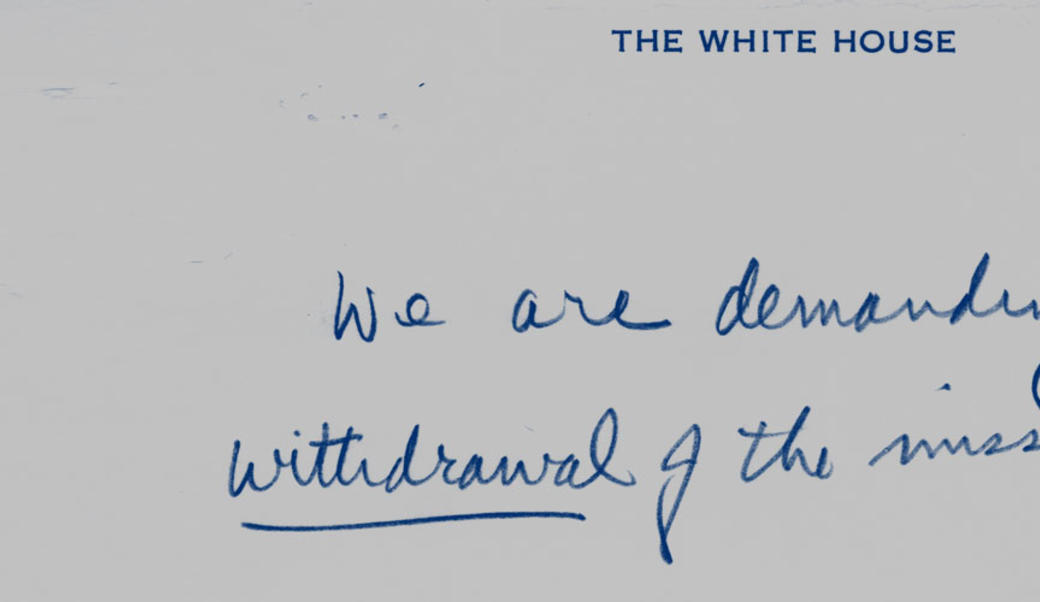 THE WHITE HOUSE
We are demandin
withdrawal of the miss